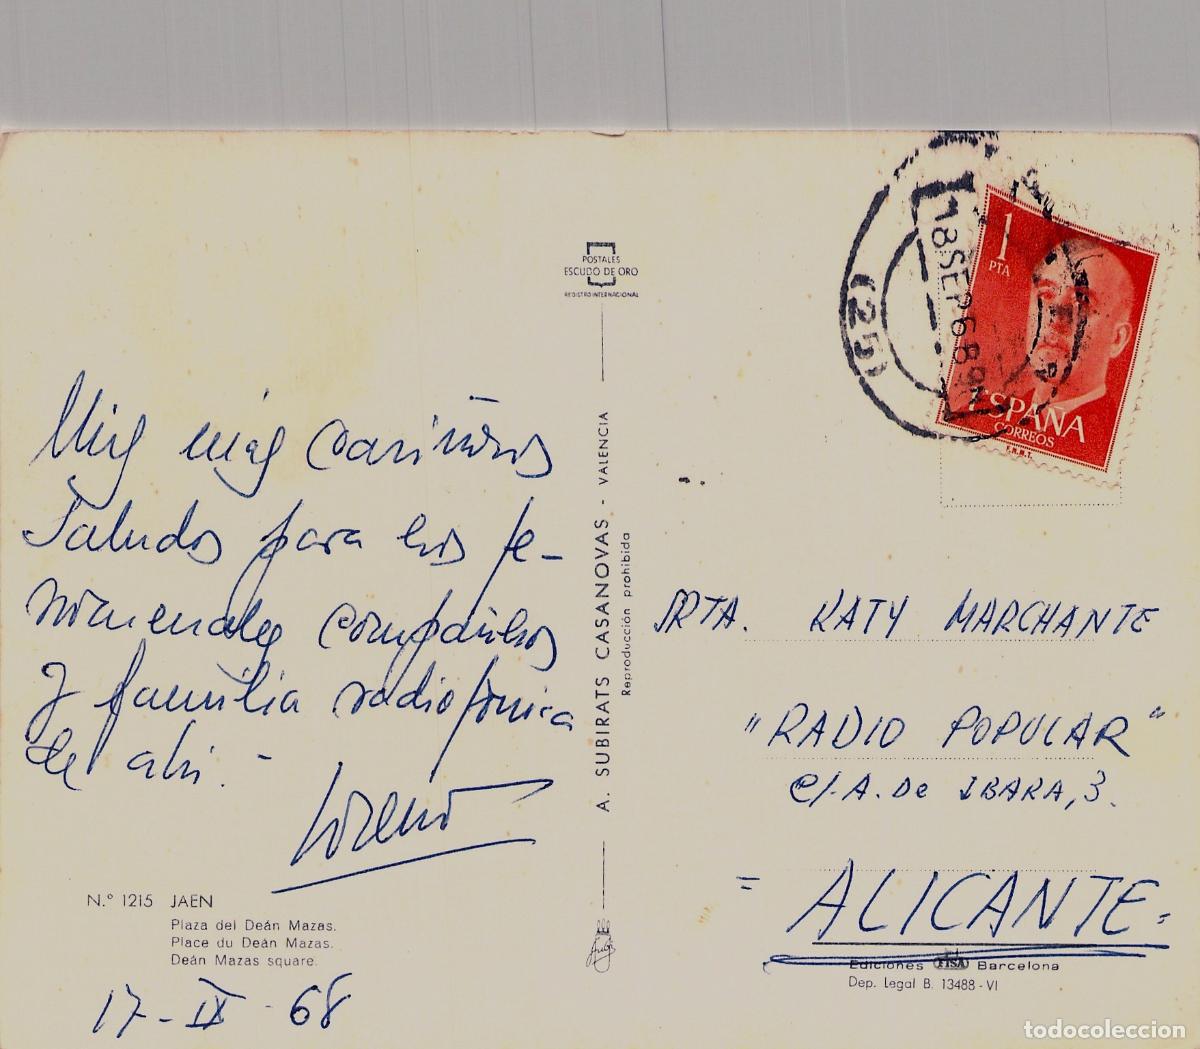 POSTALES
ESCUDO DE ORO
REGISTRO INTERNACIONAL
Mis más cariñosos
Saludos para esos fe-
nomenales compañeros
y familia radiofónica
de ahí.-
N.º 1215 JAEN
Plaza del Deán Mazas.
Place du Deán Mazas.
Deán Mazas square.
17-IX-68
A. SUBIRATS CASANOVAS - VALENCIA
Reproducción prohibida
(25)
18 SEP 68
1
PTA
ESPAÑA
CORREOS
F.N.M.T.
SRTA. KATY MARCHANTE
"RADIO POPULAR"
C/. A. De IBARA, 3.
= ALICANTE =
Ediciones FISA Barcelona
Dep. Legal B. 13488 - VI
todocoleccion